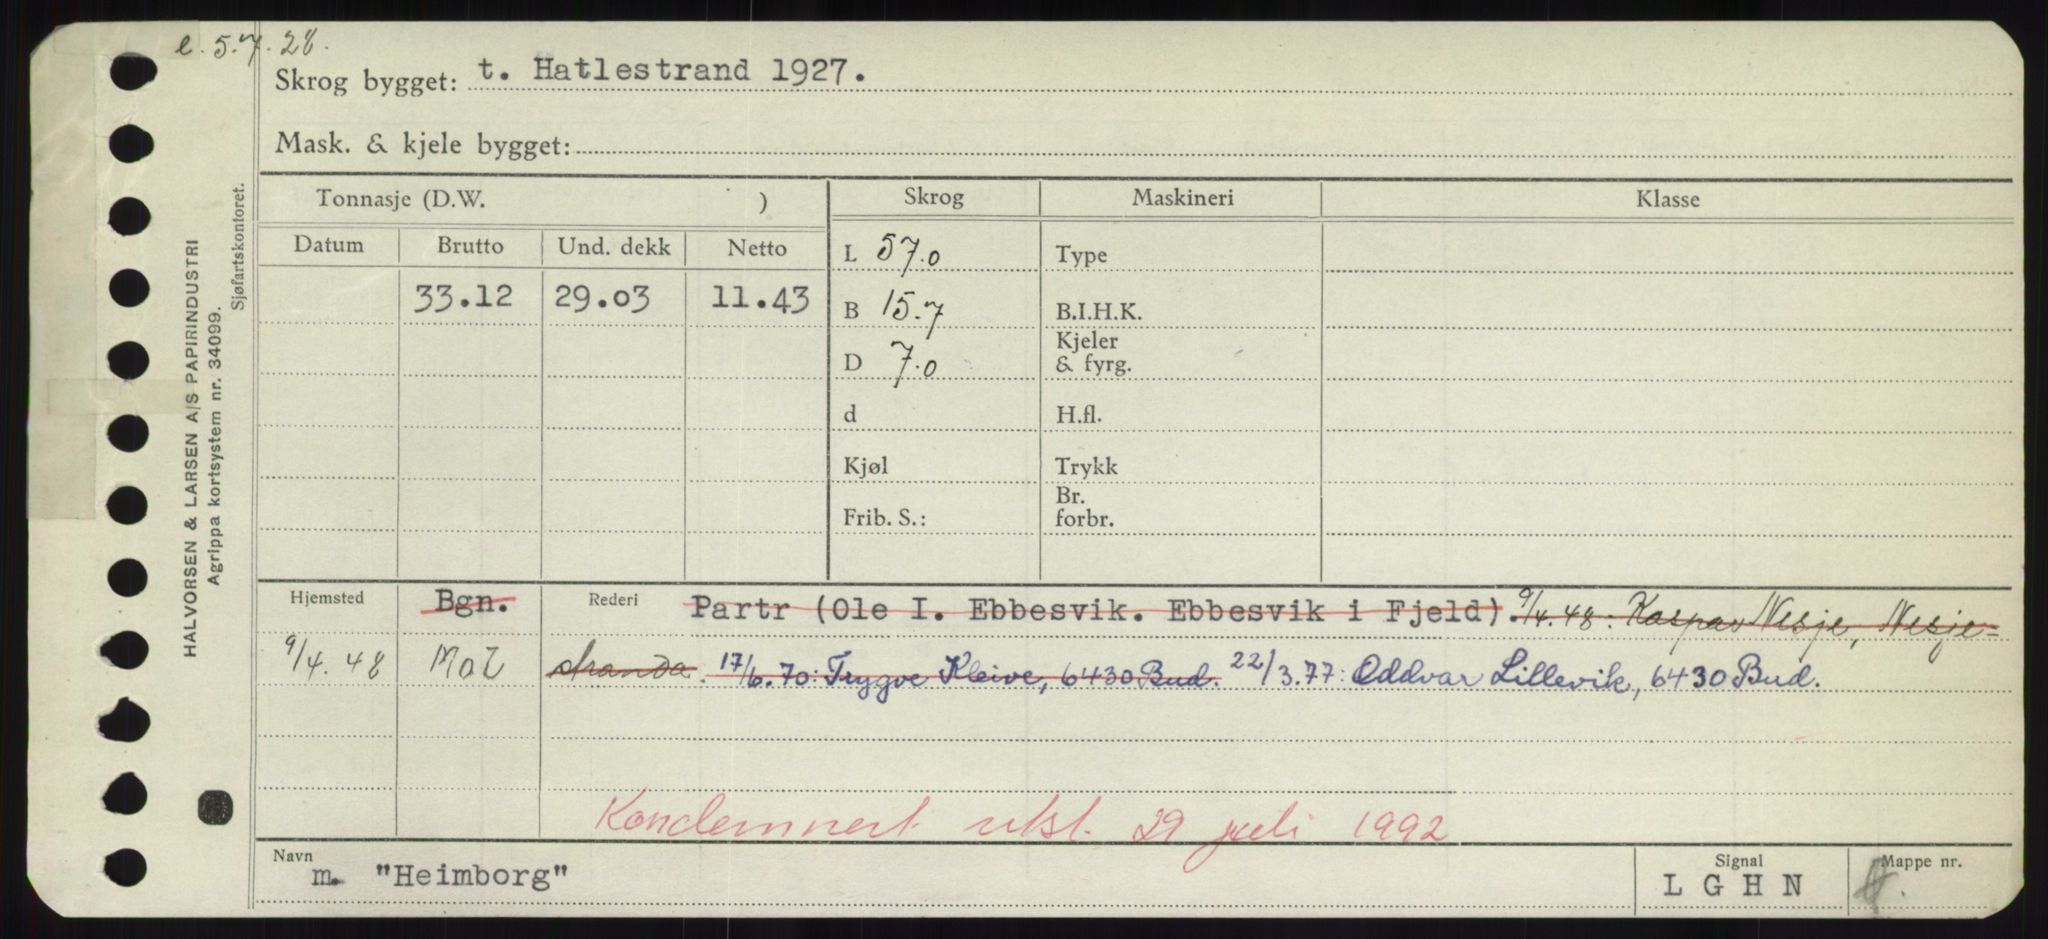 e. 5.7.28.
Skrog bygget: t. Hatlestrand 1927.
Mask. & kjele bygget:
Tonnasje (D.W. ) Skrog Maskineri Klasse
Datum Brutto Und. dekk Netto L 57.0 Type
33.12 29.03 11.43 B 15.7 B.I.H.K.
D 7.0 Kjeler & fyrg.
d H.fl.
Kjøl Trykk
Frib. S.: Br. forbr.
Hjemsted Bgn. Rederi Partr (Ole I. Ebbesvik. Ebbesvik i Fjeld). 9/4.48: Kaspar Nesje, Nesje-
9/4.48 Mol stranda. 17/6.70: Trygve Kleive, 6430 Bud. 22/3.77: Oddvar Lillevik, 6430 Bud.
Kondemnert utst. 29 juli 1992
Navn m. "Heimborg" Signal L G H N Mappe nr.
HALVORSEN & LARSEN A/S PAPIRINDUSTRI
Agrippa kortsystem nr. 34099.
Sjøfartskontoret.